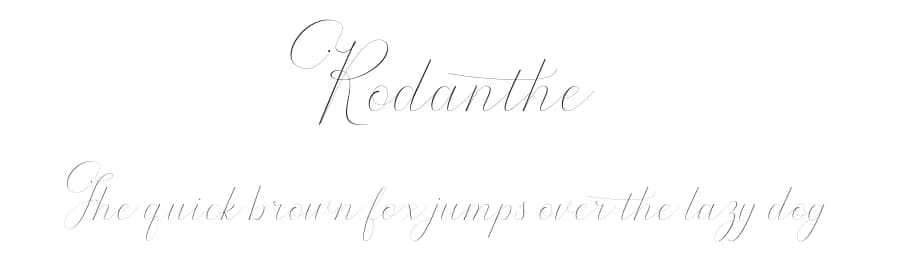 Rodanthe
The quick brown fox jumps over the lazy dog